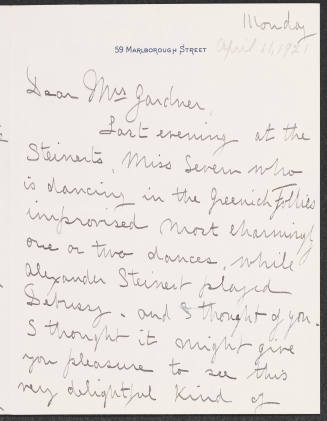 Monday
April 11, 1921
59 Marlborough Street
Dear Mrs Gardner,
Last evening at the
Steinerts, Miss Severn who
is dancing in the Greenich Follies
improvised most charmingly
one or two dances, while
Alexander Steinert played
Debussy. and I thought of you.
I thought it might give
you pleasure to see this
very delightful kind of